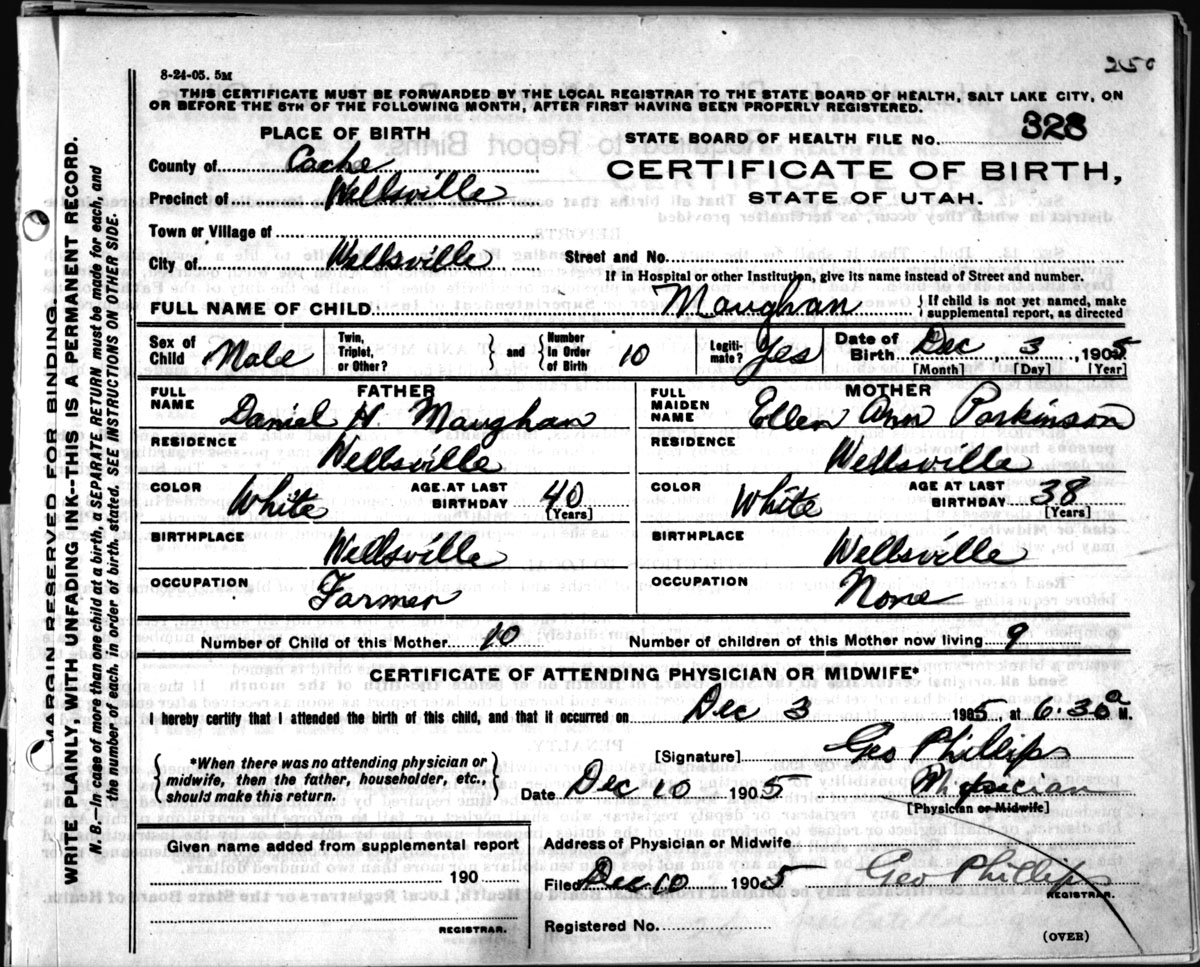 250
8-24-05. 5M
THIS CERTIFICATE MUST BE FORWARDED BY THE LOCAL REGISTRAR TO THE STATE BOARD OF HEALTH, SALT LAKE CITY, ON
OR BEFORE THE 5TH OF THE FOLLOWING MONTH, AFTER FIRST HAVING BEEN PROPERLY REGISTERED.
PLACE OF BIRTH
STATE BOARD OF HEALTH FILE NO. 328
County of Cache
CERTIFICATE OF BIRTH,
Precinct of Wellsville
STATE OF UTAH.
Town or Village of
City of Wellsville Street and No.
If in Hospital or other Institution, give its name instead of Street and number.
FULL NAME OF CHILD Maughan } If child is not yet named, make
supplemental report, as directed
Sex of Child Male Twin, Triplet, or Other? } and { Number in Order of Birth 10 Legitimate? Yes Date of Birth Dec 3, 1905
[Month] [Day] [Year]
FATHER
FULL NAME Daniel H. Maughan
RESIDENCE Wellsville
COLOR White AGE AT LAST BIRTHDAY 40
[Years]
BIRTHPLACE Wellsville
OCCUPATION Farmer
MOTHER
FULL MAIDEN NAME Ellen Ann Parkinson
RESIDENCE Wellsville
COLOR White AGE AT LAST BIRTHDAY 38
[Years]
BIRTHPLACE Wellsville
OCCUPATION None
Number of Child of this Mother 10 Number of children of this Mother now living 9
CERTIFICATE OF ATTENDING PHYSICIAN OR MIDWIFE*
I hereby certify that I attended the birth of this child, and that it occurred on Dec 3 1905, at 6.30 a M.
{ *When there was no attending physician or
midwife, then the father, householder, etc.,
should make this return. }
[Signature] Geo Phillips
Date Dec 10 1905 Physician
[Physician or Midwife]
Given name added from supplemental report
190
REGISTRAR.
Address of Physician or Midwife
Filed Dec 10 1905 Geo Phillips
REGISTRAR.
Registered No.
(OVER)
MARGIN RESERVED FOR BINDING.
WRITE PLAINLY, WITH UNFADING INK--THIS IS A PERMANENT RECORD.
N. B.--In case of more than one child at a birth, a SEPARATE RETURN must be made for each, and
the number of each, in order of birth, stated. SEE INSTRUCTIONS ON OTHER SIDE.